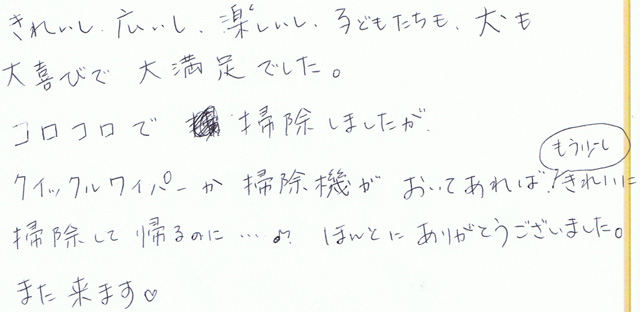 きれいし、広いし、楽しいし、子どもたちも、犬も
大喜びで 大満足でした。
コロコロで 掃除しましたが、
クイックルワイパーか 掃除機が おいてあれば、もう少しきれいに
掃除して帰るのに…♪? ほんとにありがとうございました。
また来ます♡